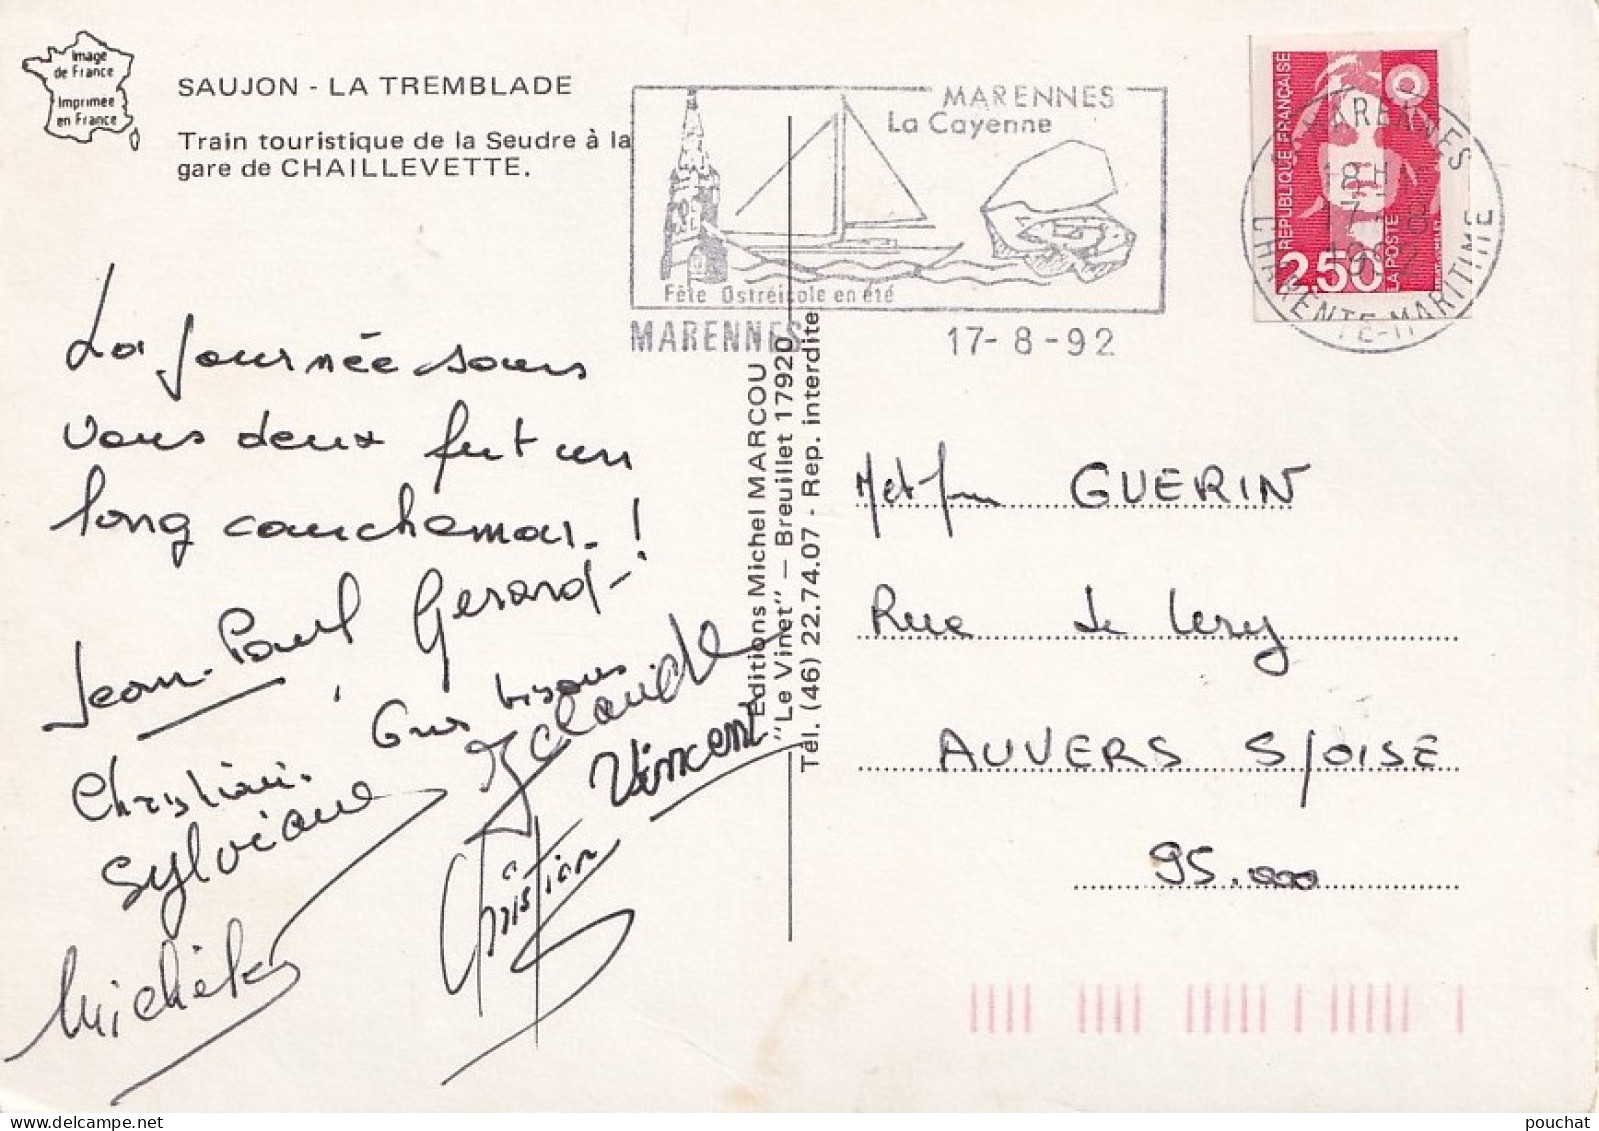 Image
de France
Imprimée
en France
SAUJON - LA TREMBLADE
Train touristique de la Seudre à la
gare de CHAILLEVETTE.
MARENNES
La Cayenne
Fête Ostréicole en été
MARENNES
17-8-92
17 MARENNES
18H
17-8
1992
CHARENTE-MARITIME
REPUBLIQUE FRANÇAISE
LA POSTE
2,50
La journée sans
vous deux fut un
long cauchemar. !
Jean-Paul Gerard
Gros bisous
Christian.
Sylviane
Claude
Vincent
Christian
Michèle
Editions Michel MARCOU
"Le Vinet" — Breuillet 17920
Tél. (46) 22.74.07 - Rep. interdite
GUERIN
Rue de Lery
AUVERS S/OISE
95.000
pouchat